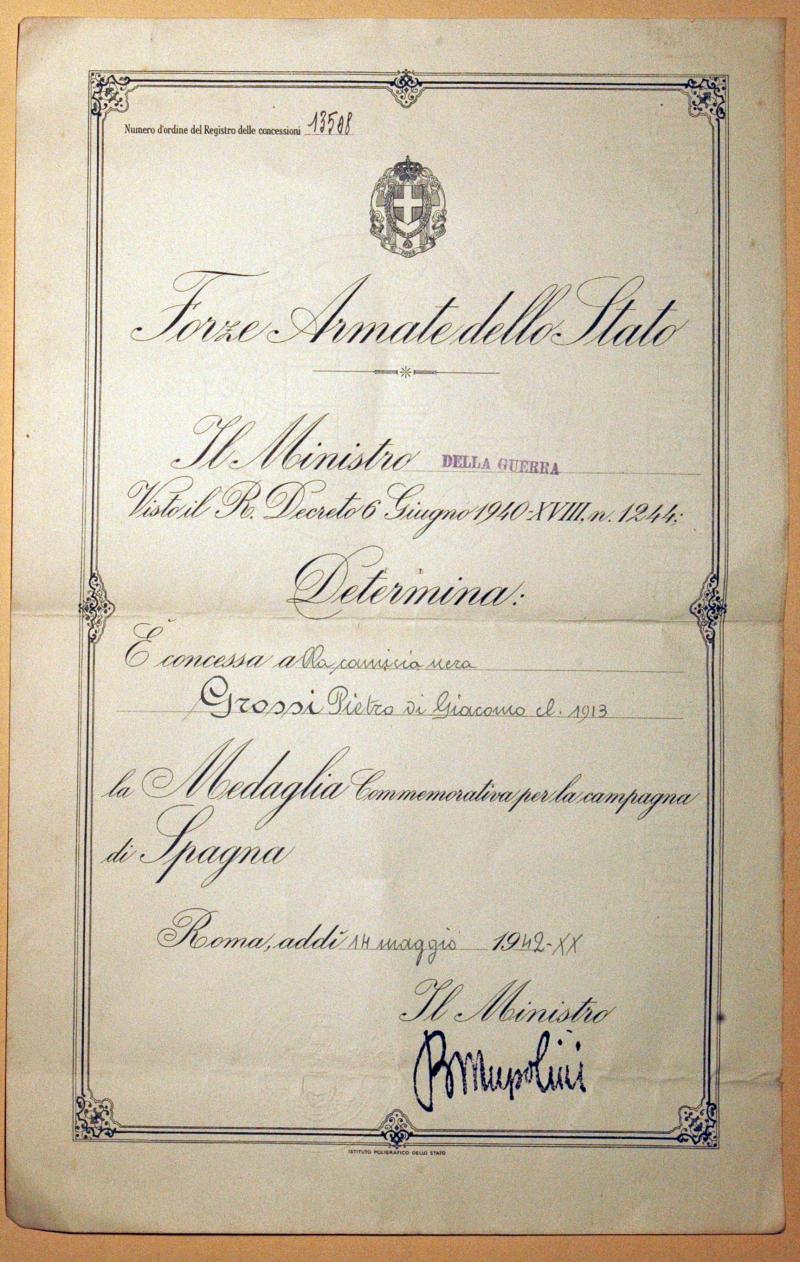 Numero d'ordine del Registro delle concessioni 13598
Forze Armate dello Stato
Il Ministro DELLA GUERRA
Visto il R. Decreto 6 Giugno 1940-XVIII, n. 1244;
Determina:
È concessa alla camicia nera
Grossi Pietro di Giacomo cl. 1913
la Medaglia Commemorativa per la campagna
di Spagna
Roma, addì 14 maggio 1942-XX
Il Ministro
BMussolini
ISTITUTO POLIGRAFICO DELLO STATO